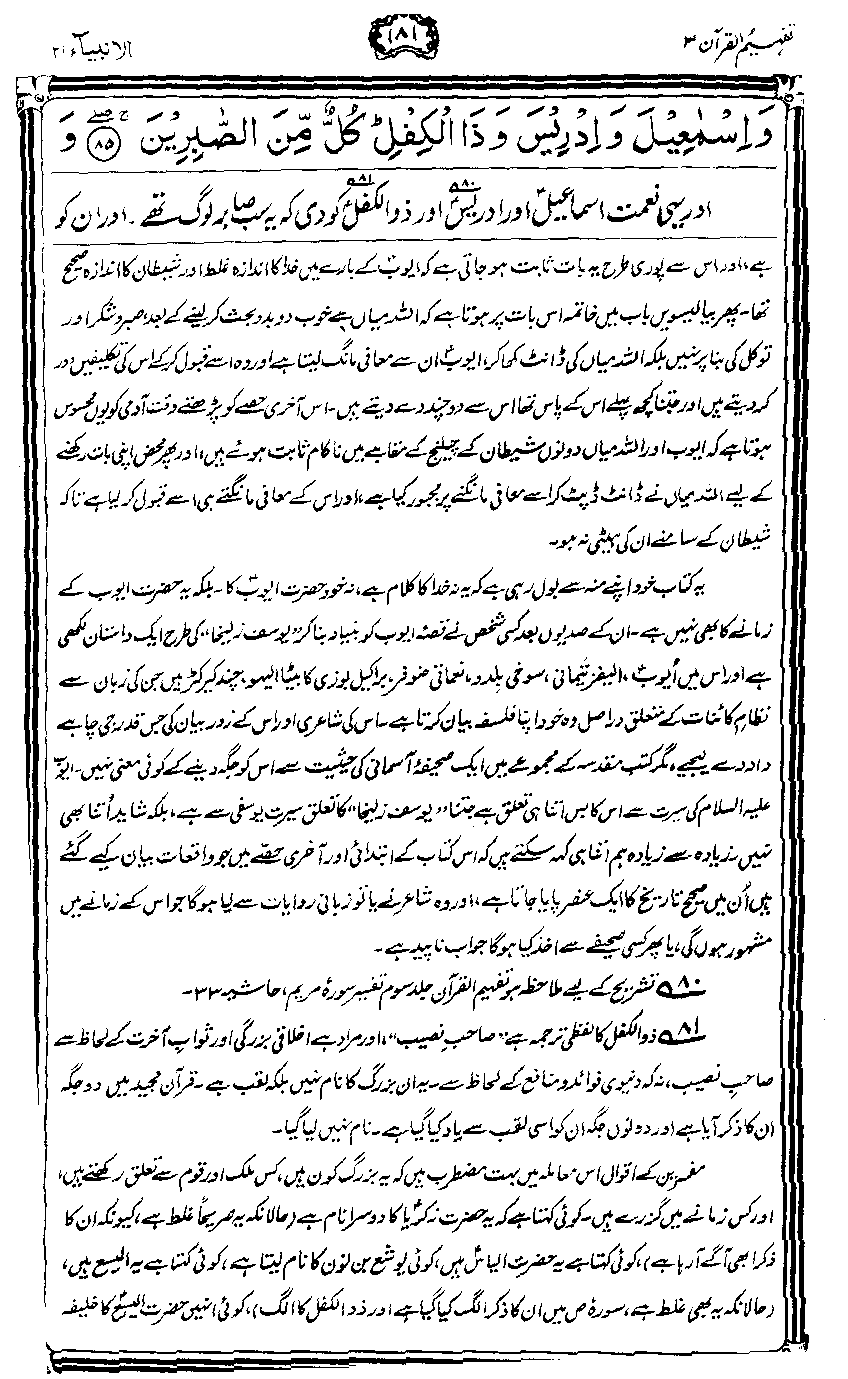 تفہیم القرآن ۳
۱۸۱
الانبیاء ۲۱
وَاِسْمٰعِيْلَ وَاِدْرِيْسَ وَذَا الْكِفْلِ ؕ كُلٌّ مِّنَ الصّٰبِرِيْنَ ﴿۸۵﴾ وَ
اور یہی نعمت اسماعیلؑ اور ادریسؑ ۸۰ اور ذوالکفلؑ ۸۱ کو دی کہ یہ سب صابر لوگ تھے۔ اور ان کو
ہے، اور اس سے پوری طرح یہ بات ثابت ہو جاتی ہے کہ ایوبؑ کے بارے میں خدا کا اندازہ غلط اور شیطان کا اندازہ صحیح
تھا۔ پھر بیالیسویں باب میں خاتمہ اس بات پر ہوتا ہے کہ اللہ میاں سے خوب دوبدو بحث کر لینے کے بعد، صبر و شکر اور
توکل کی بنا پر نہیں بلکہ اللہ میاں کی ڈانٹ کھا کر، ایوبؑ ان سے معافی مانگ لیتا ہے اور وہ اسے قبول کر کے اس کی تکلیفیں دور
کر دیتے ہیں اور جتنا کچھ پہلے اس کے پاس تھا اس سے دو چند دے دیتے ہیں۔ اس آخری حصے کو پڑھتے وقت آدمی کو یوں محسوس
ہوتا ہے کہ ایوب اور اللہ میاں دونوں شیطان کے چیلنج کے مقابلے میں ناکام ثابت ہوئے ہیں، اور پھر محض اپنی بات رکھنے
کے لیے اللہ میاں نے ڈانٹ ڈپٹ کر اسے معافی مانگنے پر مجبور کیا ہے، اور اس کے معافی مانگتے ہی اسے قبول کر لیا ہے تاکہ
شیطان کے سامنے ان کی ہیٹی نہ ہو۔
یہ کتاب خود اپنے منہ سے بول رہی ہے کہ یہ نہ خدا کا کلام ہے، نہ خود حضرت ایوبؑ کا۔ بلکہ یہ حضرت ایوب کے
زمانے کا بھی نہیں ہے۔ ان کے صدیوں بعد کسی شخص نے قصہ ایوب کو بنیاد بنا کر "یوسف زلیخا" کی طرح ایک داستان لکھی
ہے اور اس میں ایوبؑ، الیفز تیمانی، سوخی بلدد، نعماتی ضوفر، براکیل بوزی کا بیٹا الیہو، چند کیرکٹر ہیں جن کی زبان سے
نظام کائنات کے متعلق دراصل وہ خود اپنا فلسفہ بیان کرتا ہے۔ اس کی شاعری اور اس کے زور بیان کی جس قدر جی چاہے
داد دے لیجیے، مگر کتب مقدسہ کے مجموعے میں ایک صحیفۂ آسمانی کی حیثیت سے اس کو جگہ دینے کے کوئی معنی نہیں۔ ایوبؑ
علیہ السلام کی سیرت سے اس کا بس اتنا ہی تعلق ہے جتنا "یوسف زلیخا" کا تعلق سیرت یوسفی سے ہے، بلکہ شاید اتنا بھی
نہیں۔ زیادہ سے زیادہ ہم اتنا ہی کہہ سکتے ہیں کہ اس کتاب کے ابتدائی اور آخری حصے میں جو واقعات بیان کیے گئے
ہیں اُن میں صحیح تاریخ کا ایک عنصر پایا جاتا ہے، اور وہ شاعر نے یا تو زبانی روایات سے لیا ہوگا جو اس کے زمانے میں
مشہور ہوں گی، یا پھر کسی صحیفے سے اخذ کیا ہوگا جو اب ناپید ہے۔
۸۰ تشریح کے لیے ملاحظہ ہو تفہیم القرآن جلد سوم تفسیر سورۂ مریم، حاشیہ ۳۳۔
۸۱ ذوالکفل کا لفظی ترجمہ ہے "صاحب نصیب"، اور مراد ہے اخلاقی بزرگی اور ثواب آخرت کے لحاظ سے
صاحبِ نصیب، نہ کہ دنیوی فوائد و منافع کے لحاظ سے۔ یہ ان بزرگ کا نام نہیں بلکہ لقب ہے۔ قرآن مجید میں دو جگہ
ان کا ذکر آیا ہے اور دونوں جگہ ان کو اسی لقب سے یاد کیا گیا ہے۔ نام نہیں لیا گیا۔
مفسرین کے اقوال اس معاملہ میں بہت مضطرب ہیں کہ یہ بزرگ کون ہیں، کس ملک اور قوم سے تعلق رکھتے ہیں،
اور کس زمانے میں گزرے ہیں۔ کوئی کہتا ہے کہ یہ حضرت زکریاؑ کا دوسرا نام ہے (حالانکہ یہ صریحاً غلط ہے، کیونکہ ان کا
ذکر ابھی آگے آرہا ہے)، کوئی کہتا ہے یہ حضرت الیاسؑ ہیں، کوئی یوشع بن نون کا نام لیتا ہے، کوئی کہتا ہے یہ الیسع ہیں،
(حالانکہ یہ بھی غلط ہے، سورۂ ص میں ان کا ذکر الگ کیا گیا ہے اور ذوالکفل کا الگ)، کوئی انہیں حضرت الیسعؑ کا خلیفہ